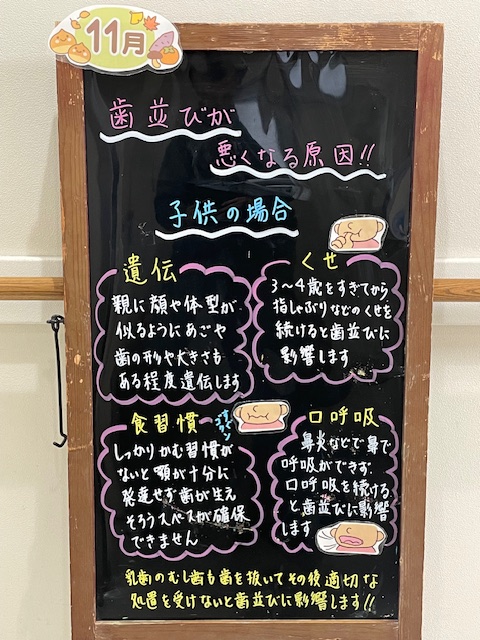 11月
歯並びが
悪くなる原因!!
子供の場合
遺伝
親に顔や体型が
似るようにあごや
歯の形や大きさも
ある程度遺伝します
くせ
3〜4歳をすぎてから
指しゃぶりなどのくせを
続けると歯並びに
影響します
食習慣
しっかりかむ習慣が
ないと顎が十分に
発達せず歯が生え
そろうスペースが確保
できません
口呼吸
鼻炎などで鼻で
呼吸ができず、
口呼吸を続ける
と歯並びに影響
します
乳歯のむし歯も歯を抜いてその後適切な
処置を受けないと歯並びに影響します!!